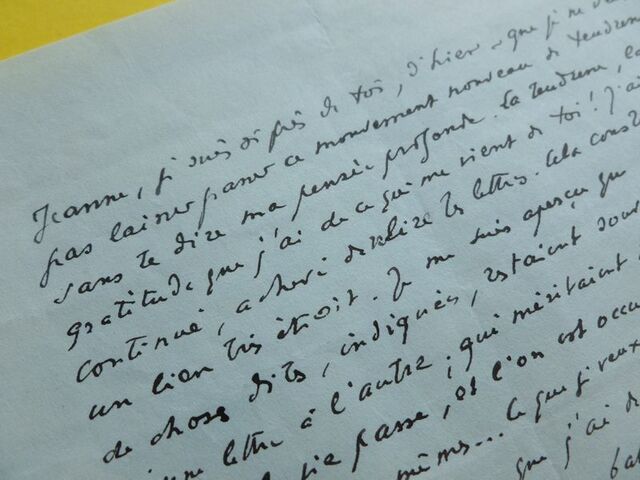 Jeanne, je suis si près de toi, d'hier – que je ne veux
pas laisser passer ce mouvement nouveau de tendresse
sans te dire ma pensée profonde. La tendresse, la
gratitude que j'ai de ce qui me vient de toi! J'ai
continué, achevé de relire tes lettres. Cela
un lien très étroit. Je me suis aperçu que
de choses dites, indiquées, restaient
une lettre à l'autre, qui méritaient
passe, et l'on est
mêmes... ce que je veux
que j'ai